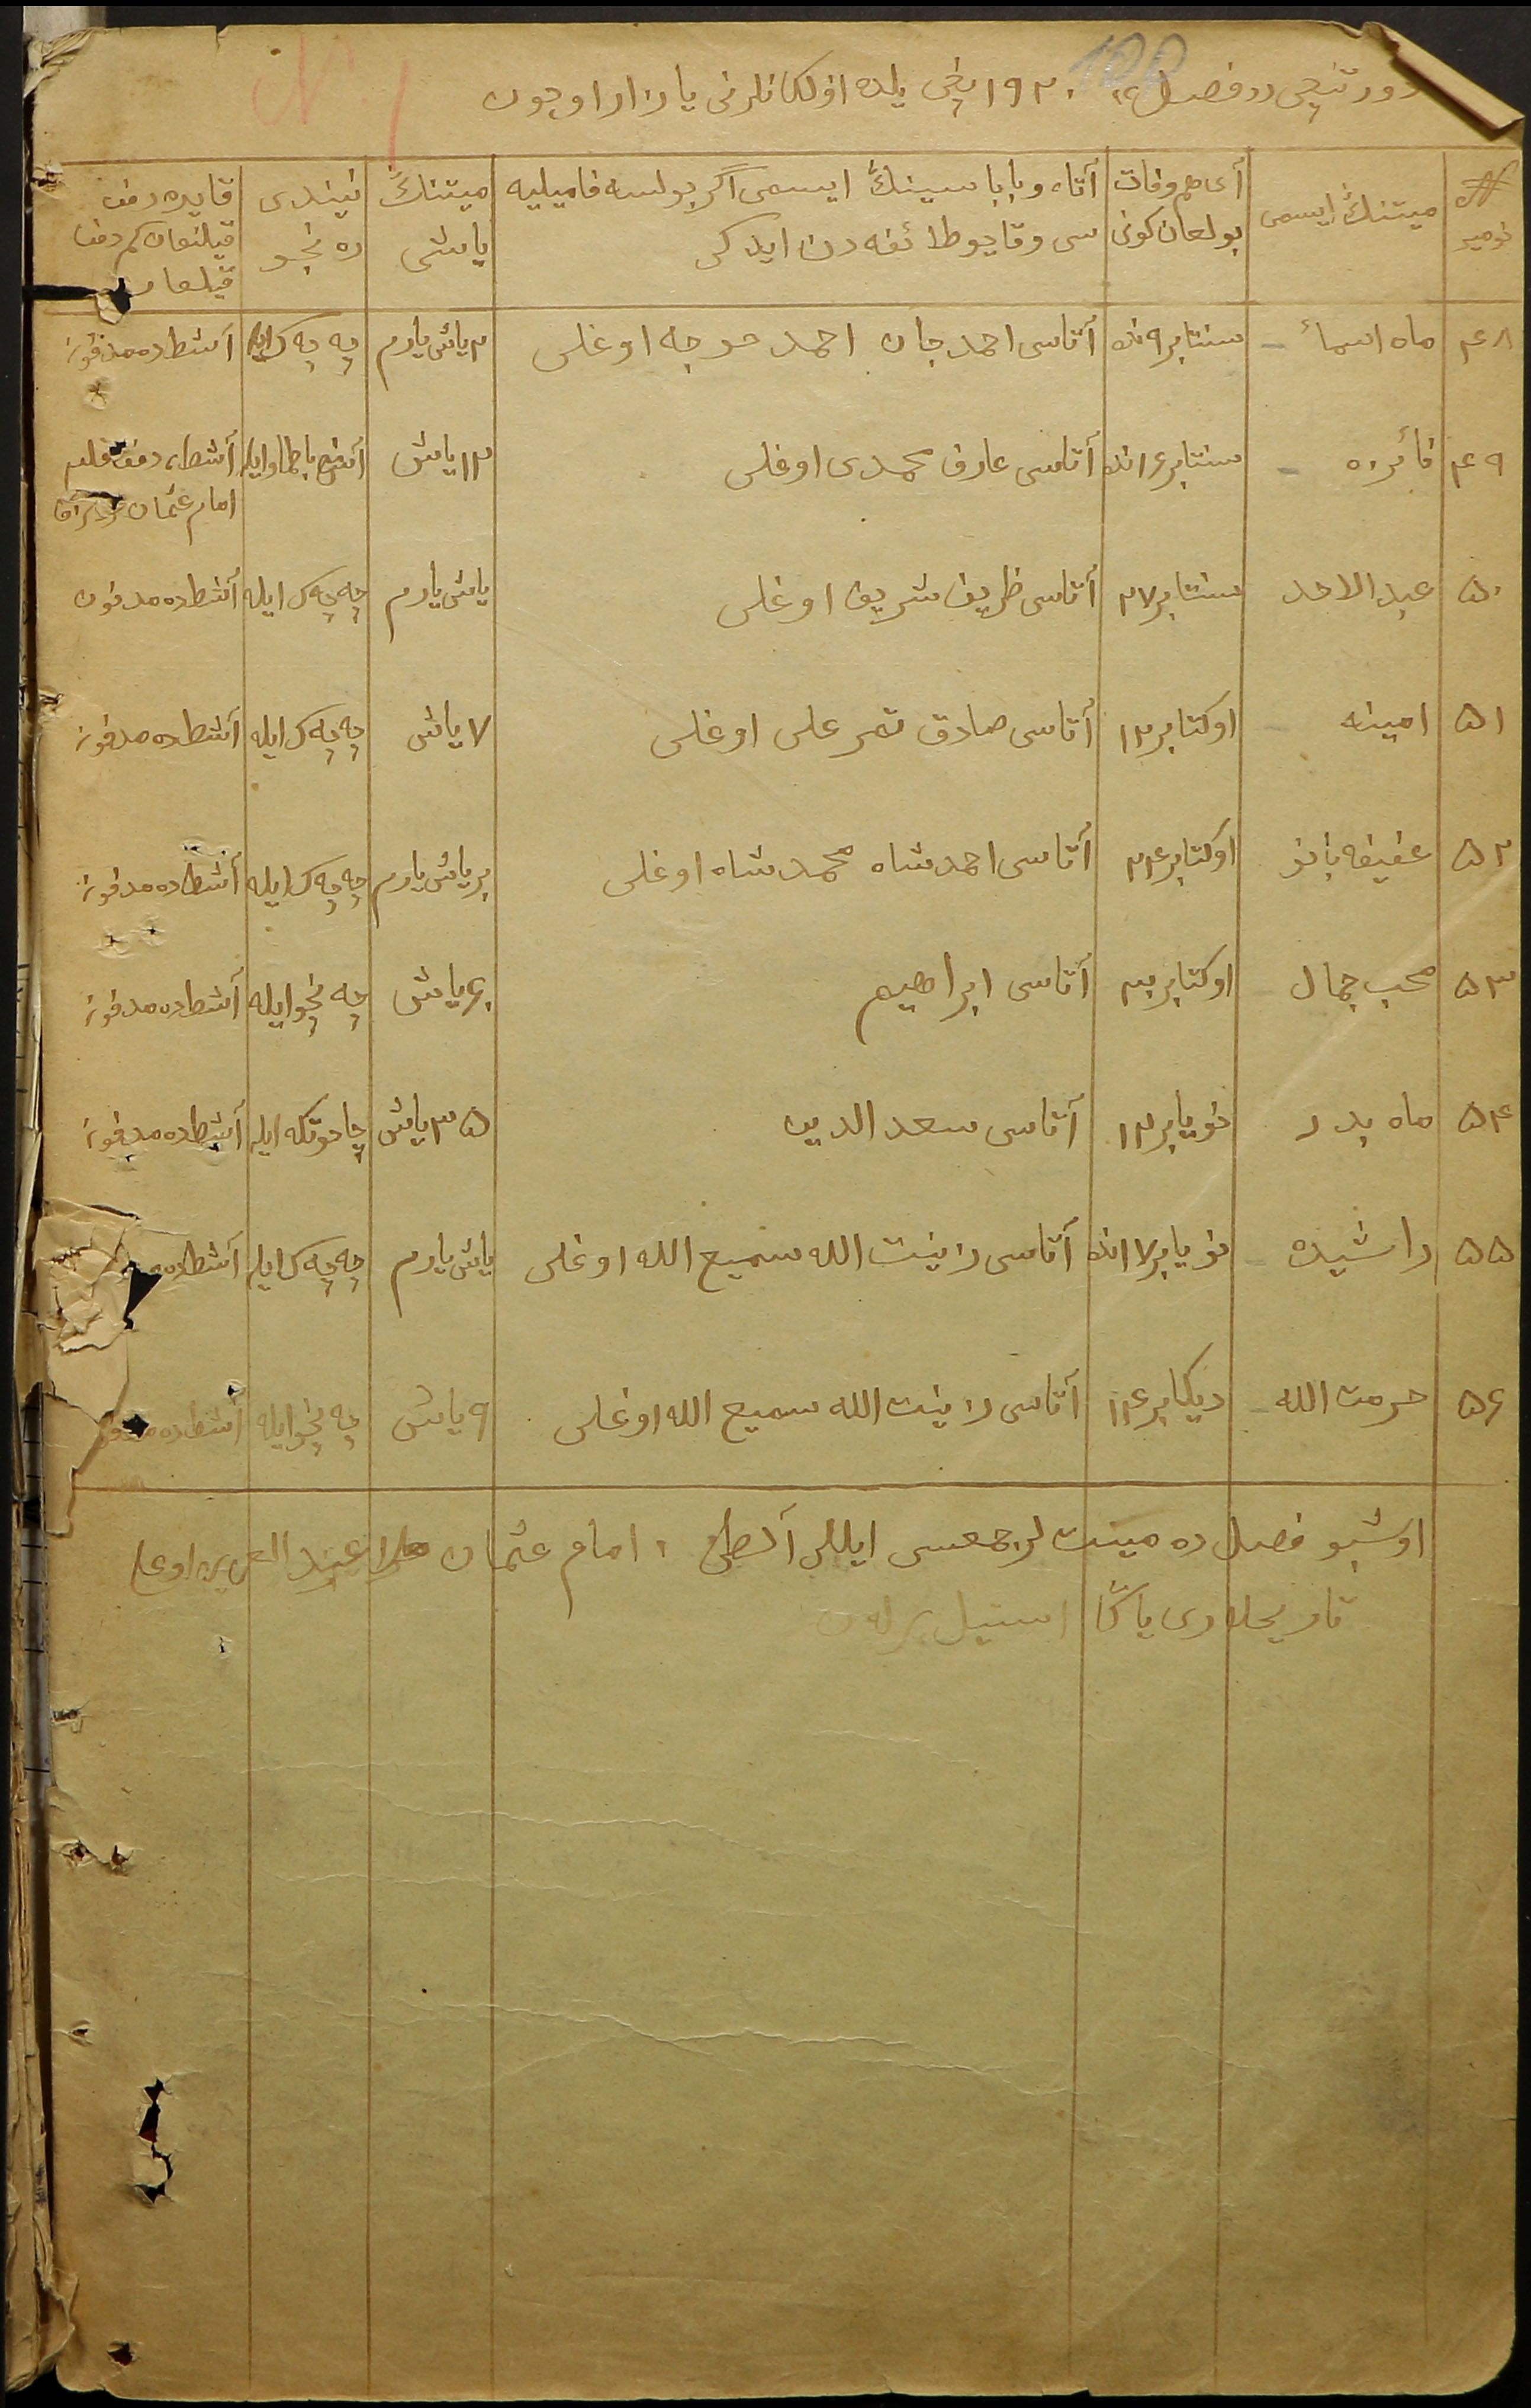 دورتنچی «فصل» ۱۹۲۰ نچی یلده اولکانلرنی یازار اوچون
№ نومیر | میتنڭ ایسمی | أی هم وفات بولغان کونی | أتاه و باباسینڭ ایسمی اگر بولسه فامیلیه سی و قایو طائفه دن ایدکی | میتنڭ یاشی | نیندی ده نجو | قایده دفن قیلنغان کم دفن قیلغان
۴۸ | ماه اسمأ | سنتابر ۹ نده | أتاسی احمد جان احمد خوجه اوغلی | ۲ یاش یارم | چه چه ک ایله | أشطاده مدفون
۴۹ | فأئزه | سنتابر ۱۶ نده | أتاسی عارف محمدی اوغلی | ۱۲ یاش | ایله | أشطاده دفن
امام عثمان
۵۰ | عبد الاحد | سنتابر ۲۷ | أتاسی ظریف شریف اوغلی | یاش یارم | چه چه ک ایله | أشطاده مدفون
۵۱ | امینه | اوکتابر ۱۲ | أتاسی صادق تمر علی اوغلی | ۷ یاش | چه چه ک ایله | أشطاده مدفون
۵۲ | عفیفه بانو | اوکتابر ۲۴ | أتاسی احمد شاه محمد شاه اوغلی | بر یاش یارم | چه چه ک ایله | أشطاده مدفون
۵۳ | محب جمال | اوکتابر | أتاسی ابراهیم | یاش | چه نچو ایله | أشطاده مدفون
۵۴ | ماه بدر | نویابر ۱۲ | أتاسی سعد الدین | ۳۵ یاش | چاخوتکه ایله | أشطاده مدفون
۵۵ | راشیده | نویابر ۱۷ نده | أتاسی زینت الله سمیع الله اوغلی | یاش یارم | چه چه ک ایله | أشطاده
۵۶ | حرمت الله | دیکابر ۱۴ | أتاسی زینت الله سمیع الله اوغلی | ۹ یاش | چه نچو ایله | أشطاده مدفون
اوشبو فصل ده میت لر جمعسی ایللی ألطی ، امام عثمان ملا عبد العزیز اوغلی
تاریخلاری یاڭا استیل برلان